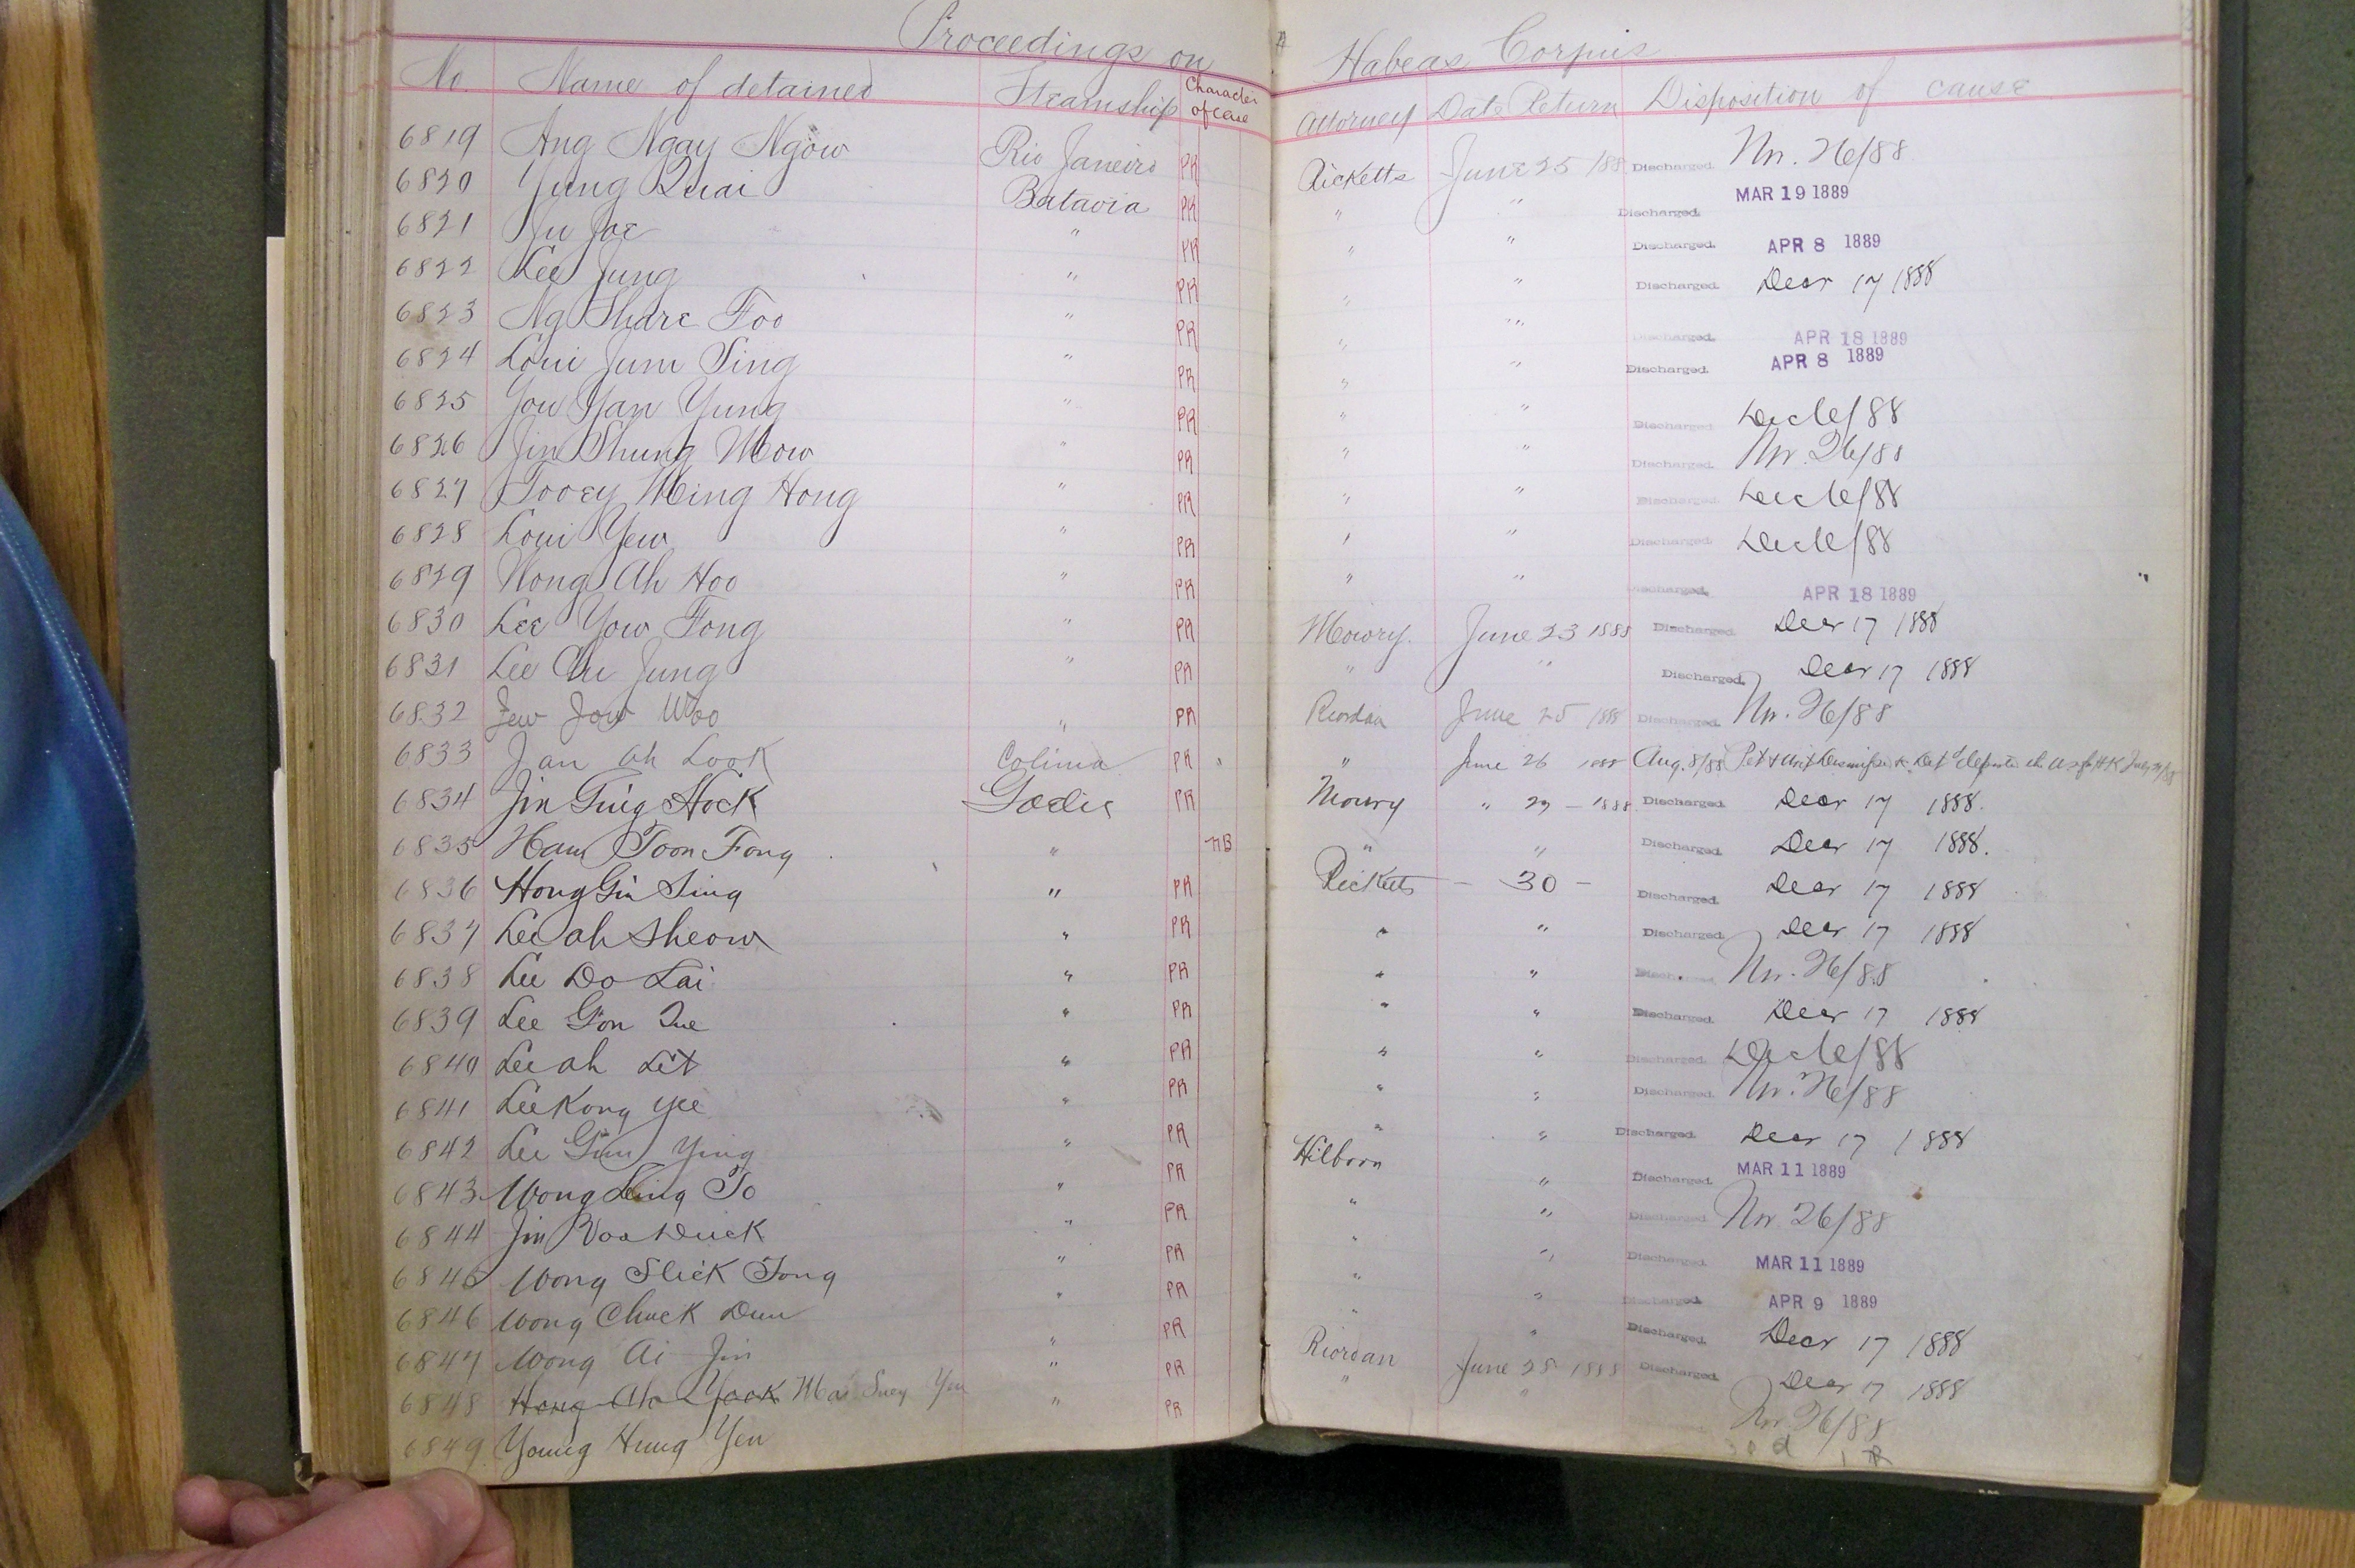 Proceedings on Habeas Corpus
No. Name of detained Steamship Character of case Attorney Date Return Disposition of cause
6819 Ang Ngay Ngow Rio Janeiro PR Ricketts June 25 /88 Discharged. Nov. 26/88
6820 Yung Quai Batavia PR " " Discharged. MAR 19 1889
6821 Yu Joe " PR " " Discharged. APR 8 1889
6822 Lee Jung " PR " " Discharged. Decr 17 1888
6823 Ng Share Foo " PR " " Discharged. APR 18 1889
6824 Loui Jum Sing " PR " " Discharged. APR 8 1889
6825 You Yan Yung " PR " " Discharged. /88
6826 Jin Shung Mow " PR " " Discharged. Nov. 26/88
6827 Tooey Ming Hong " PR " " Discharged. /88
6828 Loui Yew " PR " " Discharged. /88
6829 Wong Ah Hoo " PR " " Discharged. APR 18 1889
6830 Lee Yow Fong " PR Mowry. June 23 1888 Discharged. Decr 17 1888
6831 Lee Jung " PR " " Discharged. Decr 17 1888
6832 Jew Jow Woo " PR Riordan June 25 1888 Discharged. Nov. 26/88
6833 Jan Ah Look Colima PR " June 26 1888 Aug. 8/88
6834 Jin Ting Hock Gaelic PR Mowry " 29 - 1888 Discharged. Decr 17 1888.
6835 Ham Toon Fong " NB " " Discharged. Decr 17 1888.
6836 Hong Gin Sing " PR Ricketts - 30 - Discharged. Decr 17 1888
6837 Lee ah Sheow " PR " " Discharged. Decr 17 1888
6838 Lee Do Lai " PR " " Nov. 26/88
6839 Lee Gon Que " PR " " Discharged. Decr 17 1888
6840 Lee ah Lit " PR " " Discharged. /88
6841 Lee Kong Yee " PR " " Discharged. Nov. 26/88
6842 Lee Gim Ying " PR " " Discharged. Decr 17 1888
6843 Wong Ling To " PR Hilborn " Discharged. MAR 11 1889
6844 Jin Woo Duck " PR " " Discharged. Nov. 26/88
6845 Wong Slick Tong " PR " " Discharged. MAR 11 1889
6846 Wong Chuck Dun " PR " " Discharged. APR 9 1889
6847 Wong Ai Jin " PR " " Discharged. Decr 17 1888
6848 Hong Ah Yook Mai Suey Yen " PR Riordan June 28 1888 Discharged. Decr 17 1888
6849 Young Hung Yen " PR " " Nov. 26/88